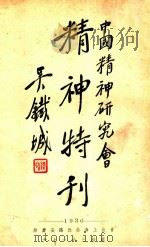 中國精神研究會
精神特刊
吳鐵城
1936